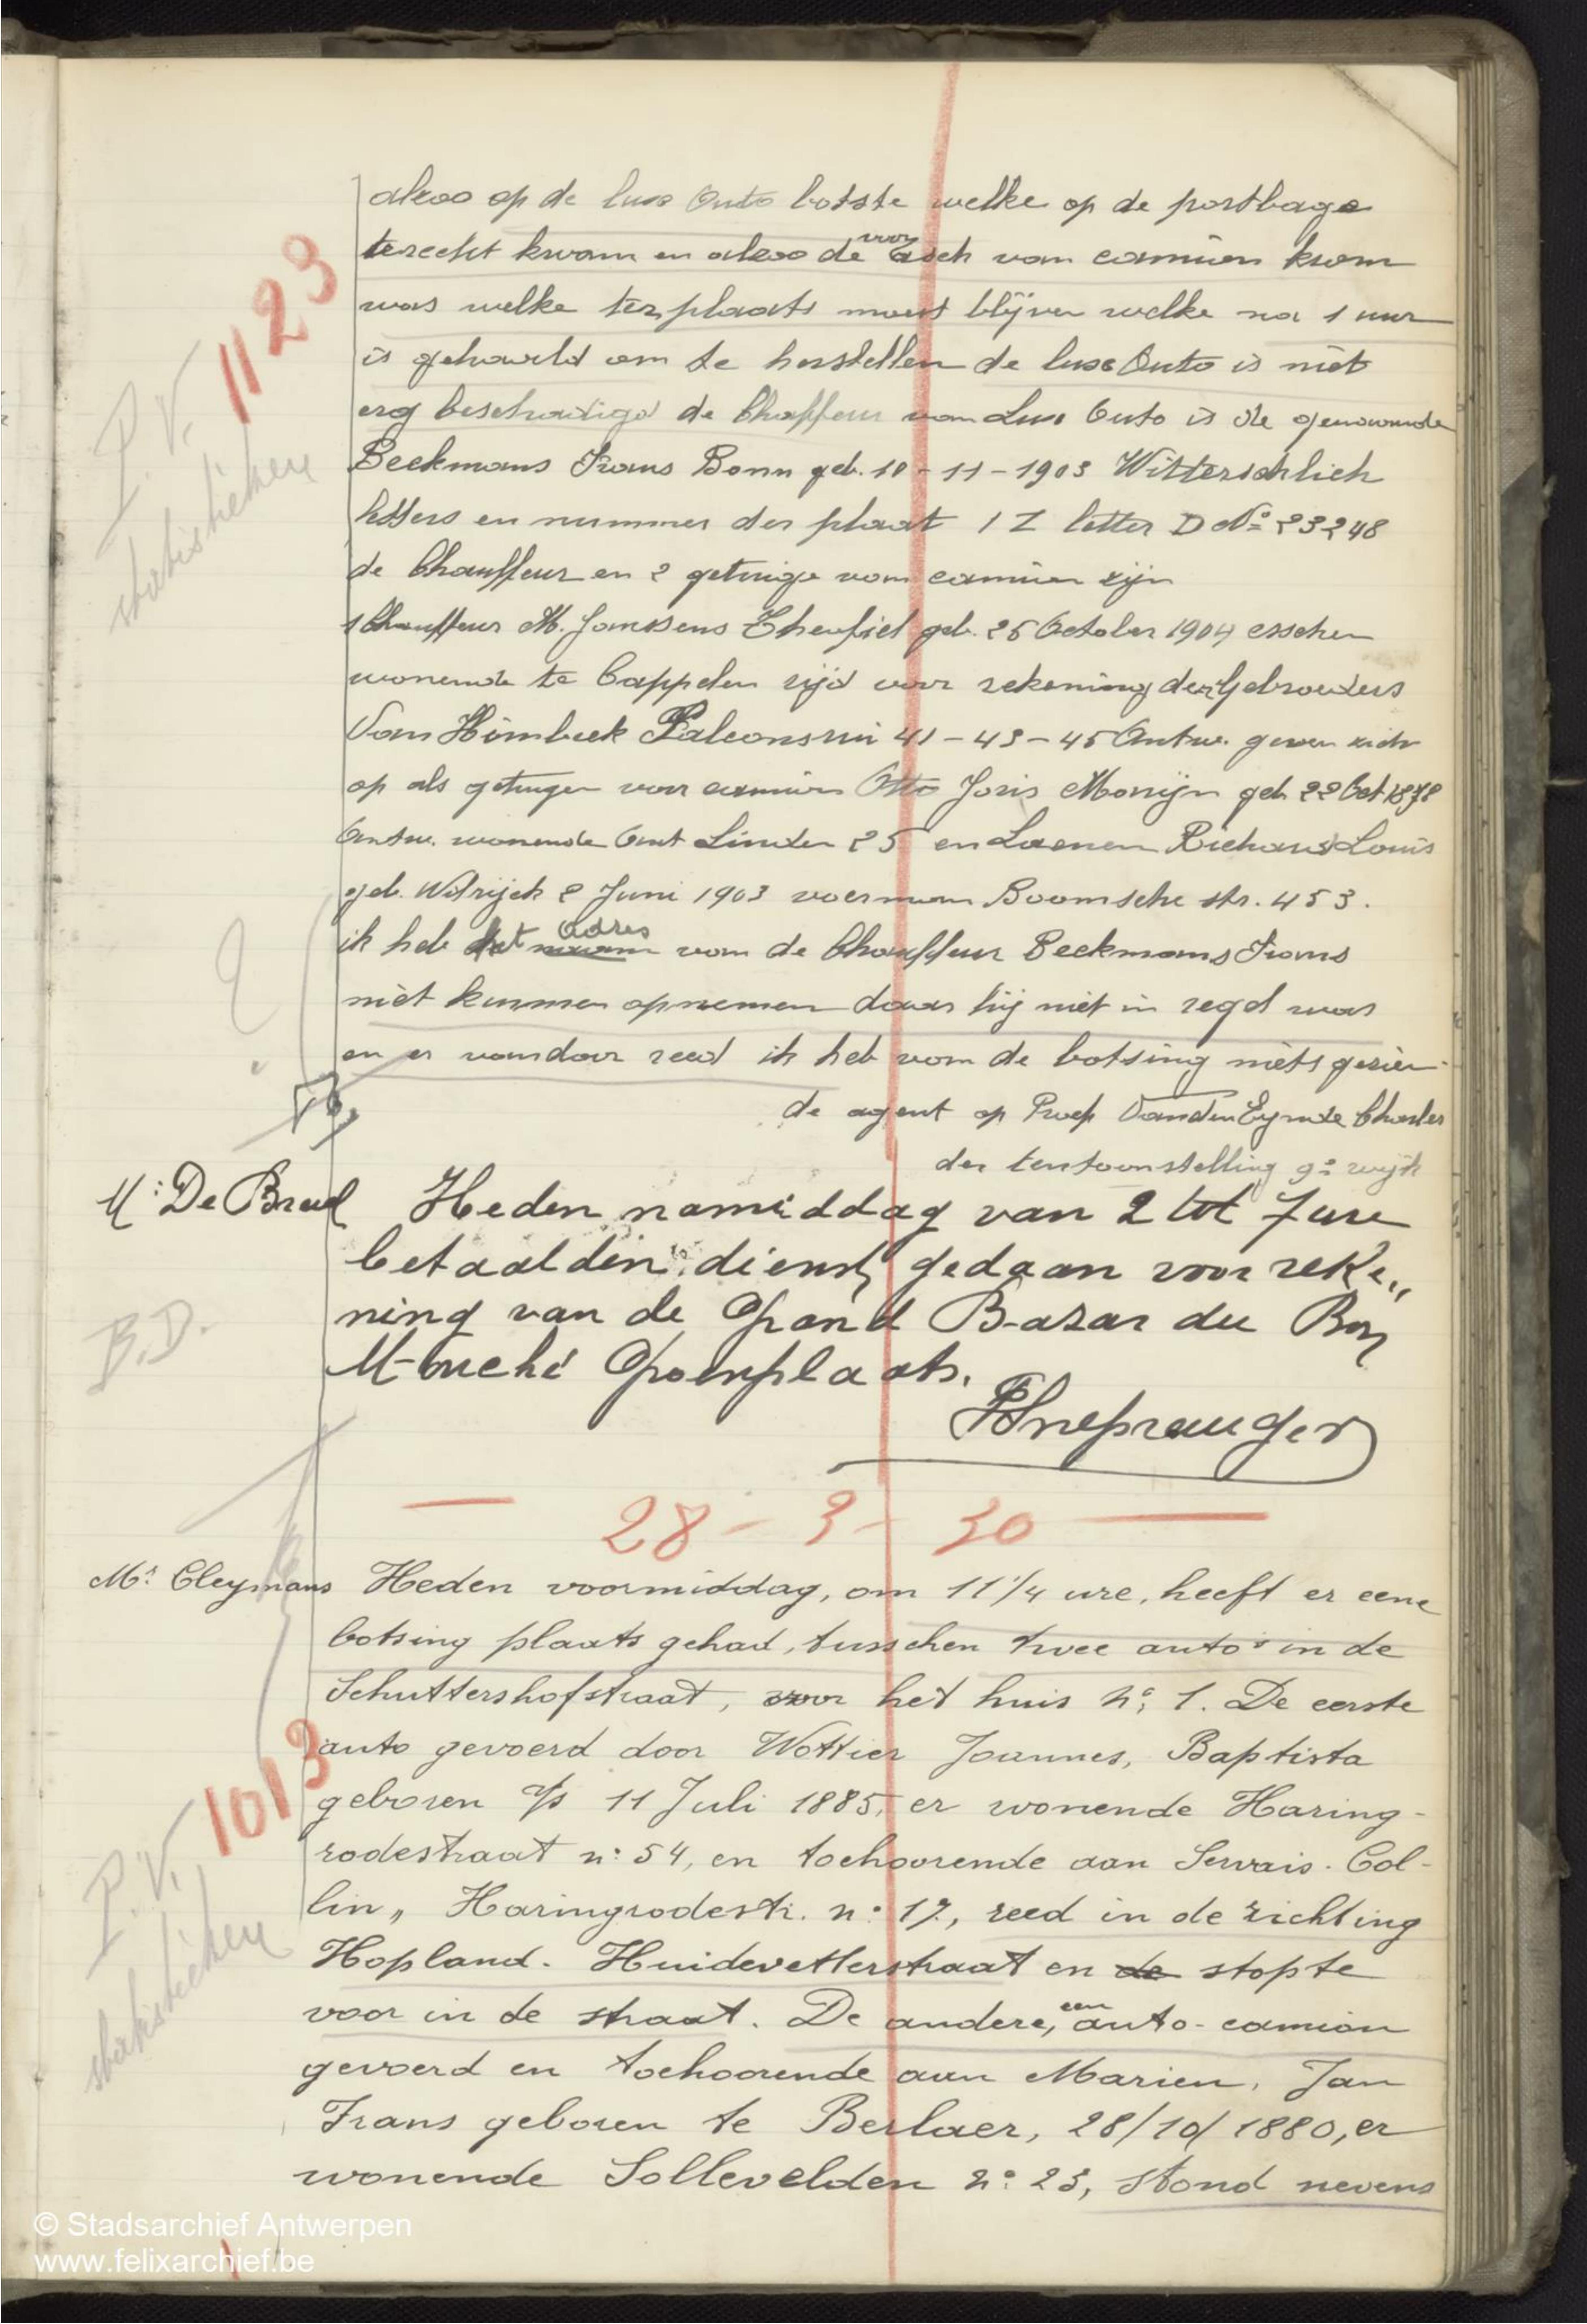 alzoo op de luxe Auto botste welke op de portbage
terecht kwam en alzoo de voor asch van camion krom
was welke ter plaats moest blijven welke na 1 uur
is gehaald om te herstellen de luxe Auto is niet
erg beschadigd de Chaffeur van Luxe Auto is de genaamde
Beekmans Frans Bonn geb. 10-11-1903 Witterschlich
letters en nummer der plaat I Z letter D No 23248
de Chauffeur en 2 getuige van camion zijn
1 Chauffeur M. Janssens geb. 26 October 1904 esschen
wonende te Cappelen rijd voor rekening der Gebroeders
Van Himbeek Falconsrui 41-43-45 Antw. geven zich
op als getuigen voor camion Otto Joris Marijn geb 22 Oct 1878
Antw. wonende Linden 25 en Laenen Richard Louis
geb. Wilrijck 2 Juni 1903 voerman Boomsche str. 453.
ik heb het naam Adres van de Chauffeur Beekmans Frans
niet kunnen opnemen daar hij niet in regel was
en er vandoor reed ik heb van de botsing niets gezien
de agent op Proef Vanden Eynde Charles
der tentoonstelling 9e wijk
P.V. 1123
statistieken
?
Mr De Breul Heden namiddag van 2 tot 7 ure
betaalden dienst gedaan voor reke„
ning van de Grand Bazar du Bon
Marché Groenplaats.
B.D.
28-3-30
Mr Cleymans Heden voormiddag, om 11 1/4 ure, heeft er eene
botsing plaats gehad, tusschen twee auto's in de
Schuttershofstraat, voor het huis no 1. De eerste
auto gevoerd door Wottier Joannes, Baptista
geboren a/s 11 Juli 1885, er wonende Haring-
rodestraat n: 54, en toehoorende aan Servais-Col-
lin„ Haringrodestr. n: 17, reed in de richting
Hopland-Huidevetterstraat en de stopte
voor in de straat. De andere, een auto-camion
gevoerd en toehoorende aan Marien, Jan
Frans geboren te Berlaer, 28/10/1880, er
wonende Sollevelden n: 23, stond nevens
P.V. 1013
statistieken
© Stadsarchief Antwerpen
www.felixarchief.be